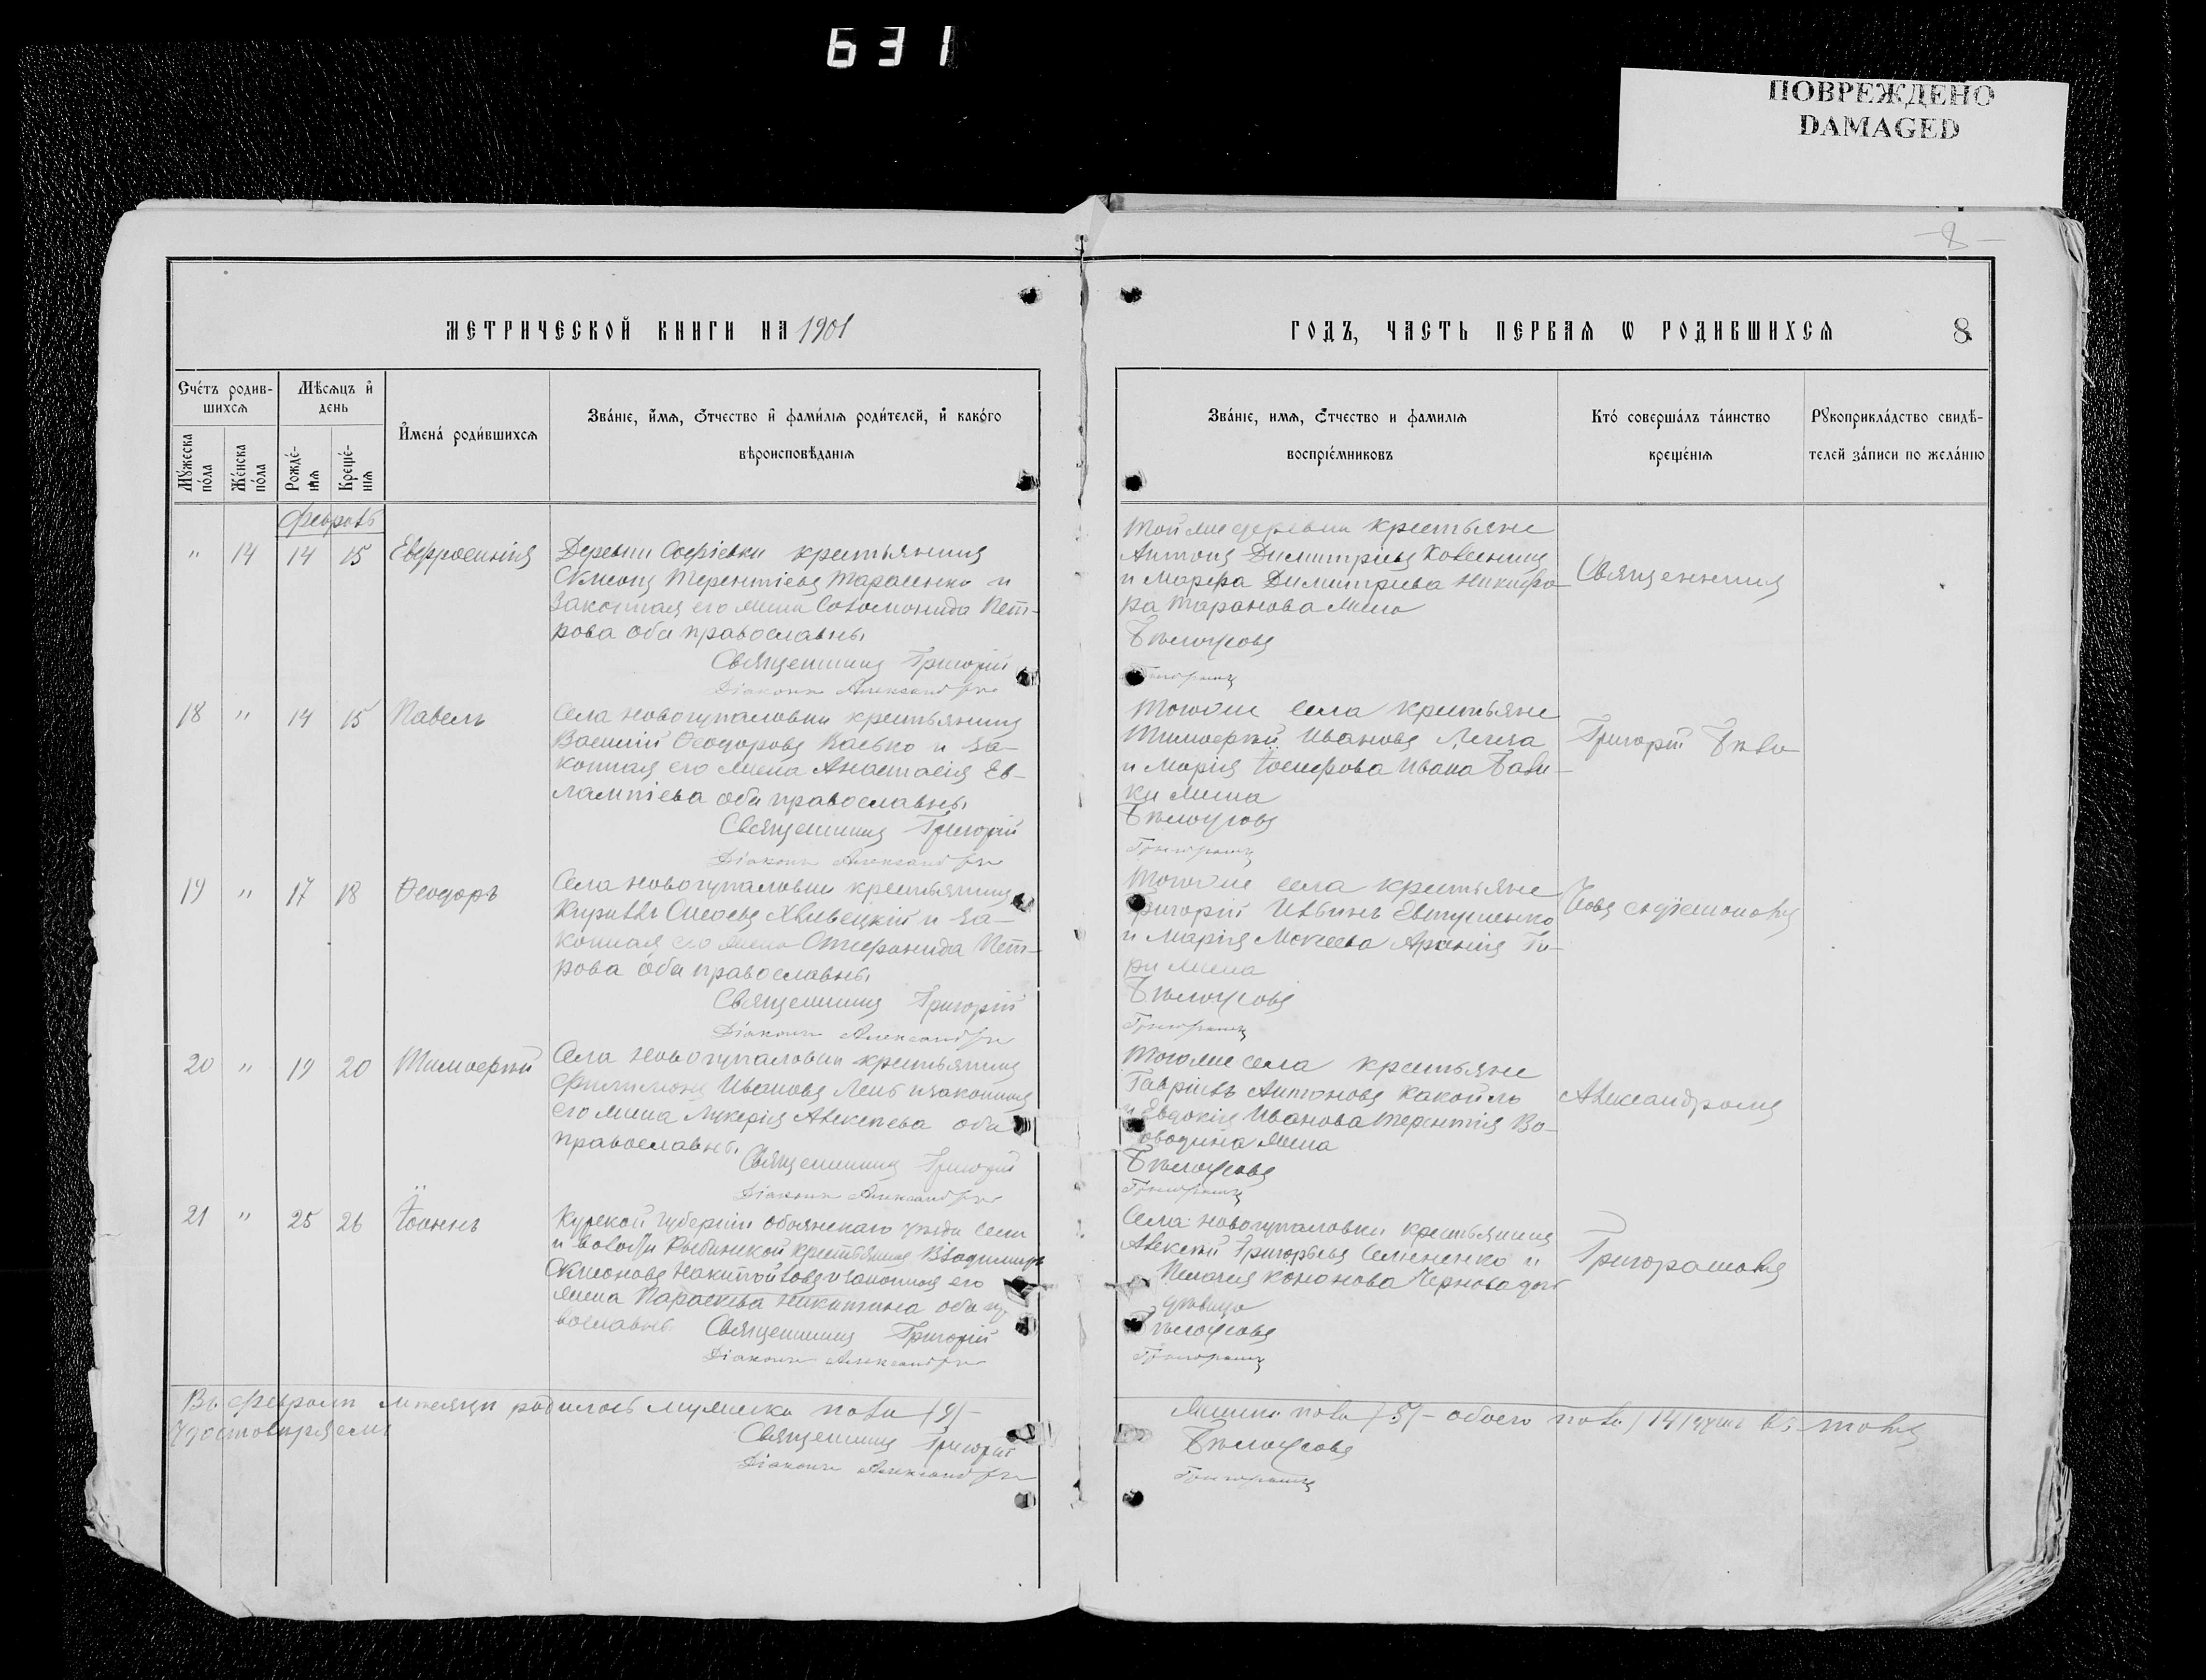 631
ПОВРЕЖДЕНО
DAMAGED
8
МЕТРИЧЕСКОЙ КНИГИ НА 1901
ГОДЪ, ЧАСТЬ ПЕРВАЯ Ѡ РОДИВШИХСЯ
8
Счétъ родив-
шихся
Мѣсяцъ и
день
Мꙋжеска пола
Женска пола
Рожде-
нїя
Креще-
нїя
Имена родившихся
Званїе, имя, Ѻтчество и фамилїя родителей, и какого
вѣроисповѣданїя
Званїе, имя, Ѻтчество и фамилїя
воспрїемниковъ
Кто совершалъ таинство
крещенїя
Рꙋкоприкладство свидѣ-
телей записи по желанїю
Февраль
" 14 14 15 Евфросинія
Деревни Софіевки крестьянинъ
Симеонъ Терентіевъ Тарасенко и
законная его жена Соломонида Пет-
рова оба православны
Священникъ Григорій
Діаконъ Александръ
Той же деревни крестьяне
Антонъ Димитріевъ
и Марфа Димитріева Никифо-
ра Таранова жена
Бѣлоусовъ
Григорашъ
Священникъ
18 " 14 15 Павелъ
Села Новогупаловки крестьянинъ
Василій Ѳеодоровъ Васько и за-
конная его жена Анастасія Ев-
лампіева оба православны
Священникъ Григорій
Діаконъ Александръ
Того же села крестьяне
Тимоѳей Ивановъ
и Марія Іосифова Ивана
ки жена
Бѣлоусовъ
Григорашъ
Григорій Бѣло-
19 " 17 18 Ѳеодоръ
Села Новогупаловки крестьянинъ
Кириллъ Хвилецкій и за-
конная его жена Стефанида Пет-
рова оба православны
Священникъ Григорій
Діаконъ Александръ
Того же села крестьяне
Григорій Ильинъ Евтушенко
и Марія Мокеева
жена
Бѣлоусовъ
Григорашъ
усовъ съ діакономъ
20 " 19 20 Тимоѳей
Села Новогупаловки крестьянинъ
Филимонъ Ивановъ и законная
его жена Лукерія Алексѣева оба
православны.
Священникъ Григорій
Діаконъ Александръ
Того же села крестьяне
Гавріилъ Антоновъ
и Евдокія Иванова Терентія Во-
жена
Бѣлоусовъ
Григорашъ
Александромъ
21 " 25 26 Іоаннъ
Курской губерніи Обоянскаго уѣзда села
и волости Рыбинской крестьянинъ Владиміръ
Симеоновъ и законная его
жена Параскева Никитина оба пра-
вославны.
Священникъ Григорій
Діаконъ Александръ
Села Новогупаловки крестьянинъ
Алексѣй Григорьевъ Семененко и
Пелагея Кононова
дѣвица
Бѣлоусовъ
Григорашъ
Григорашомъ
Въ Февралѣ мѣсяцѣ родилось мужеска пола /9/ -
женска пола /5/ - обоего пола /14/ душъ въ томъ
удостовѣряемъ
Священникъ Григорій
Діаконъ Александръ
Бѣлоусовъ
Григорашъ